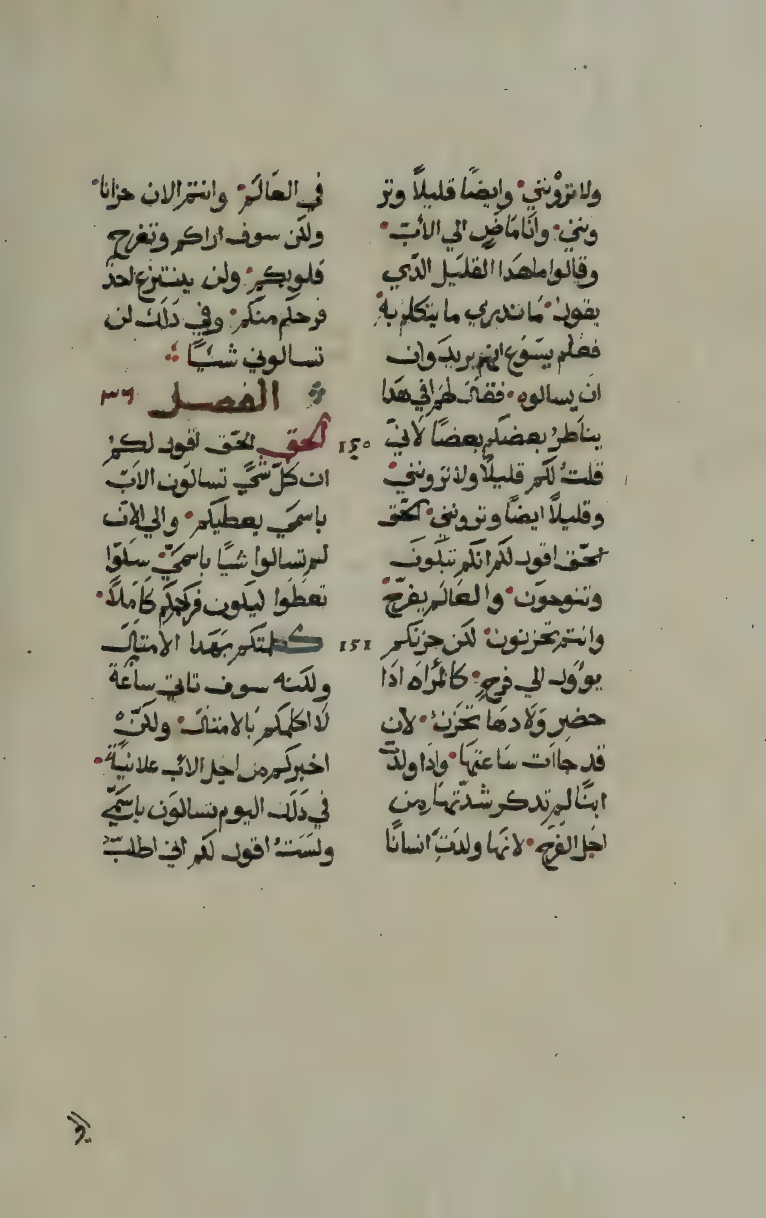 ولا تروني وايضًا قليلًا وتر
وني وانا ماضٍ الي الاب
وقالوا ما هدا القليل الدي
يقول ما ندري ما يتكلم به
فعلم يسوع انهم يريدون
ان يسالوه فقال لهم افي هدا
يناظر بعضكم بعضًا لاني
قلت لكم قليلًا ولا تروني
وقليلًا ايضًا وتروني الحق
الحق اقول لكم انكم تبكون
وتنوحون والعالم يفرح
وانتم تحزنون لكن حزنكم
يوول الي فرح كالمراه ادا
حضر ولادها تحزن لان
قد جاات ساعتها وادا ولدت
ابنًا لم تدكر شدتها من
اجل الفرح لانها ولدت انسانًا
في العالم وانتم الان حزانا
ولكن سوف اراكم وتفرح
قلوبكم ولن ينتزع احد
فرحكم منكم وفي دلك لن
تسالوني شيًا
الفصل ٣٦
١٤٠ الحق الحق اقول لكم
ان كل شي تسالون الاب
باسمي يعطيكم والي الان
لم تسالوا شيًا باسمي سلوا
تعطوا ليكون فرحكم كاملًا
١٤١ كلمتكم بهدا الامتال
ولكنه سوف تاتي ساعة
لا اكلمكم بالامتال ولكن
اخبركم من اجل الاب علانية
في دلك اليوم تسالون باسمي
ولست اقول لكم اني اطلب